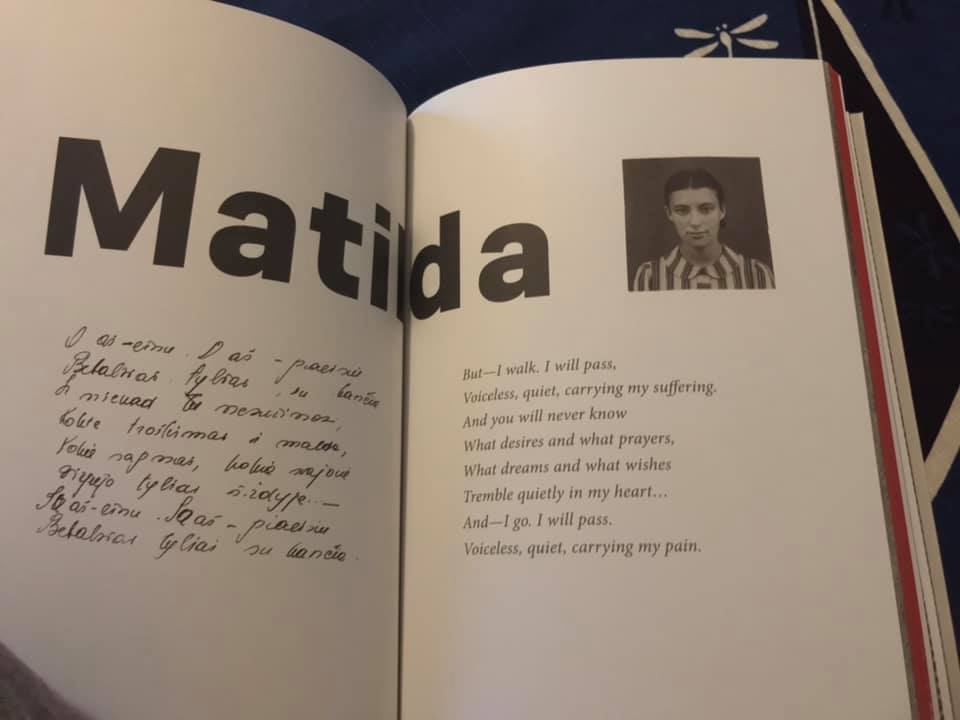 Matilda
O aš-einu. O aš - praeisiu
tyliai su kančia
niekad tu
Kokie troškimai
Kokie
tyliai širdyje...
aš-einu. aš - praeisiu
tyliai su kančia.
But—I walk. I will pass,
Voiceless, quiet, carrying my suffering.
And you will never know
What desires and what prayers,
What dreams and what wishes
Tremble quietly in my heart…
And—I go. I will pass.
Voiceless, quiet, carrying my pain.